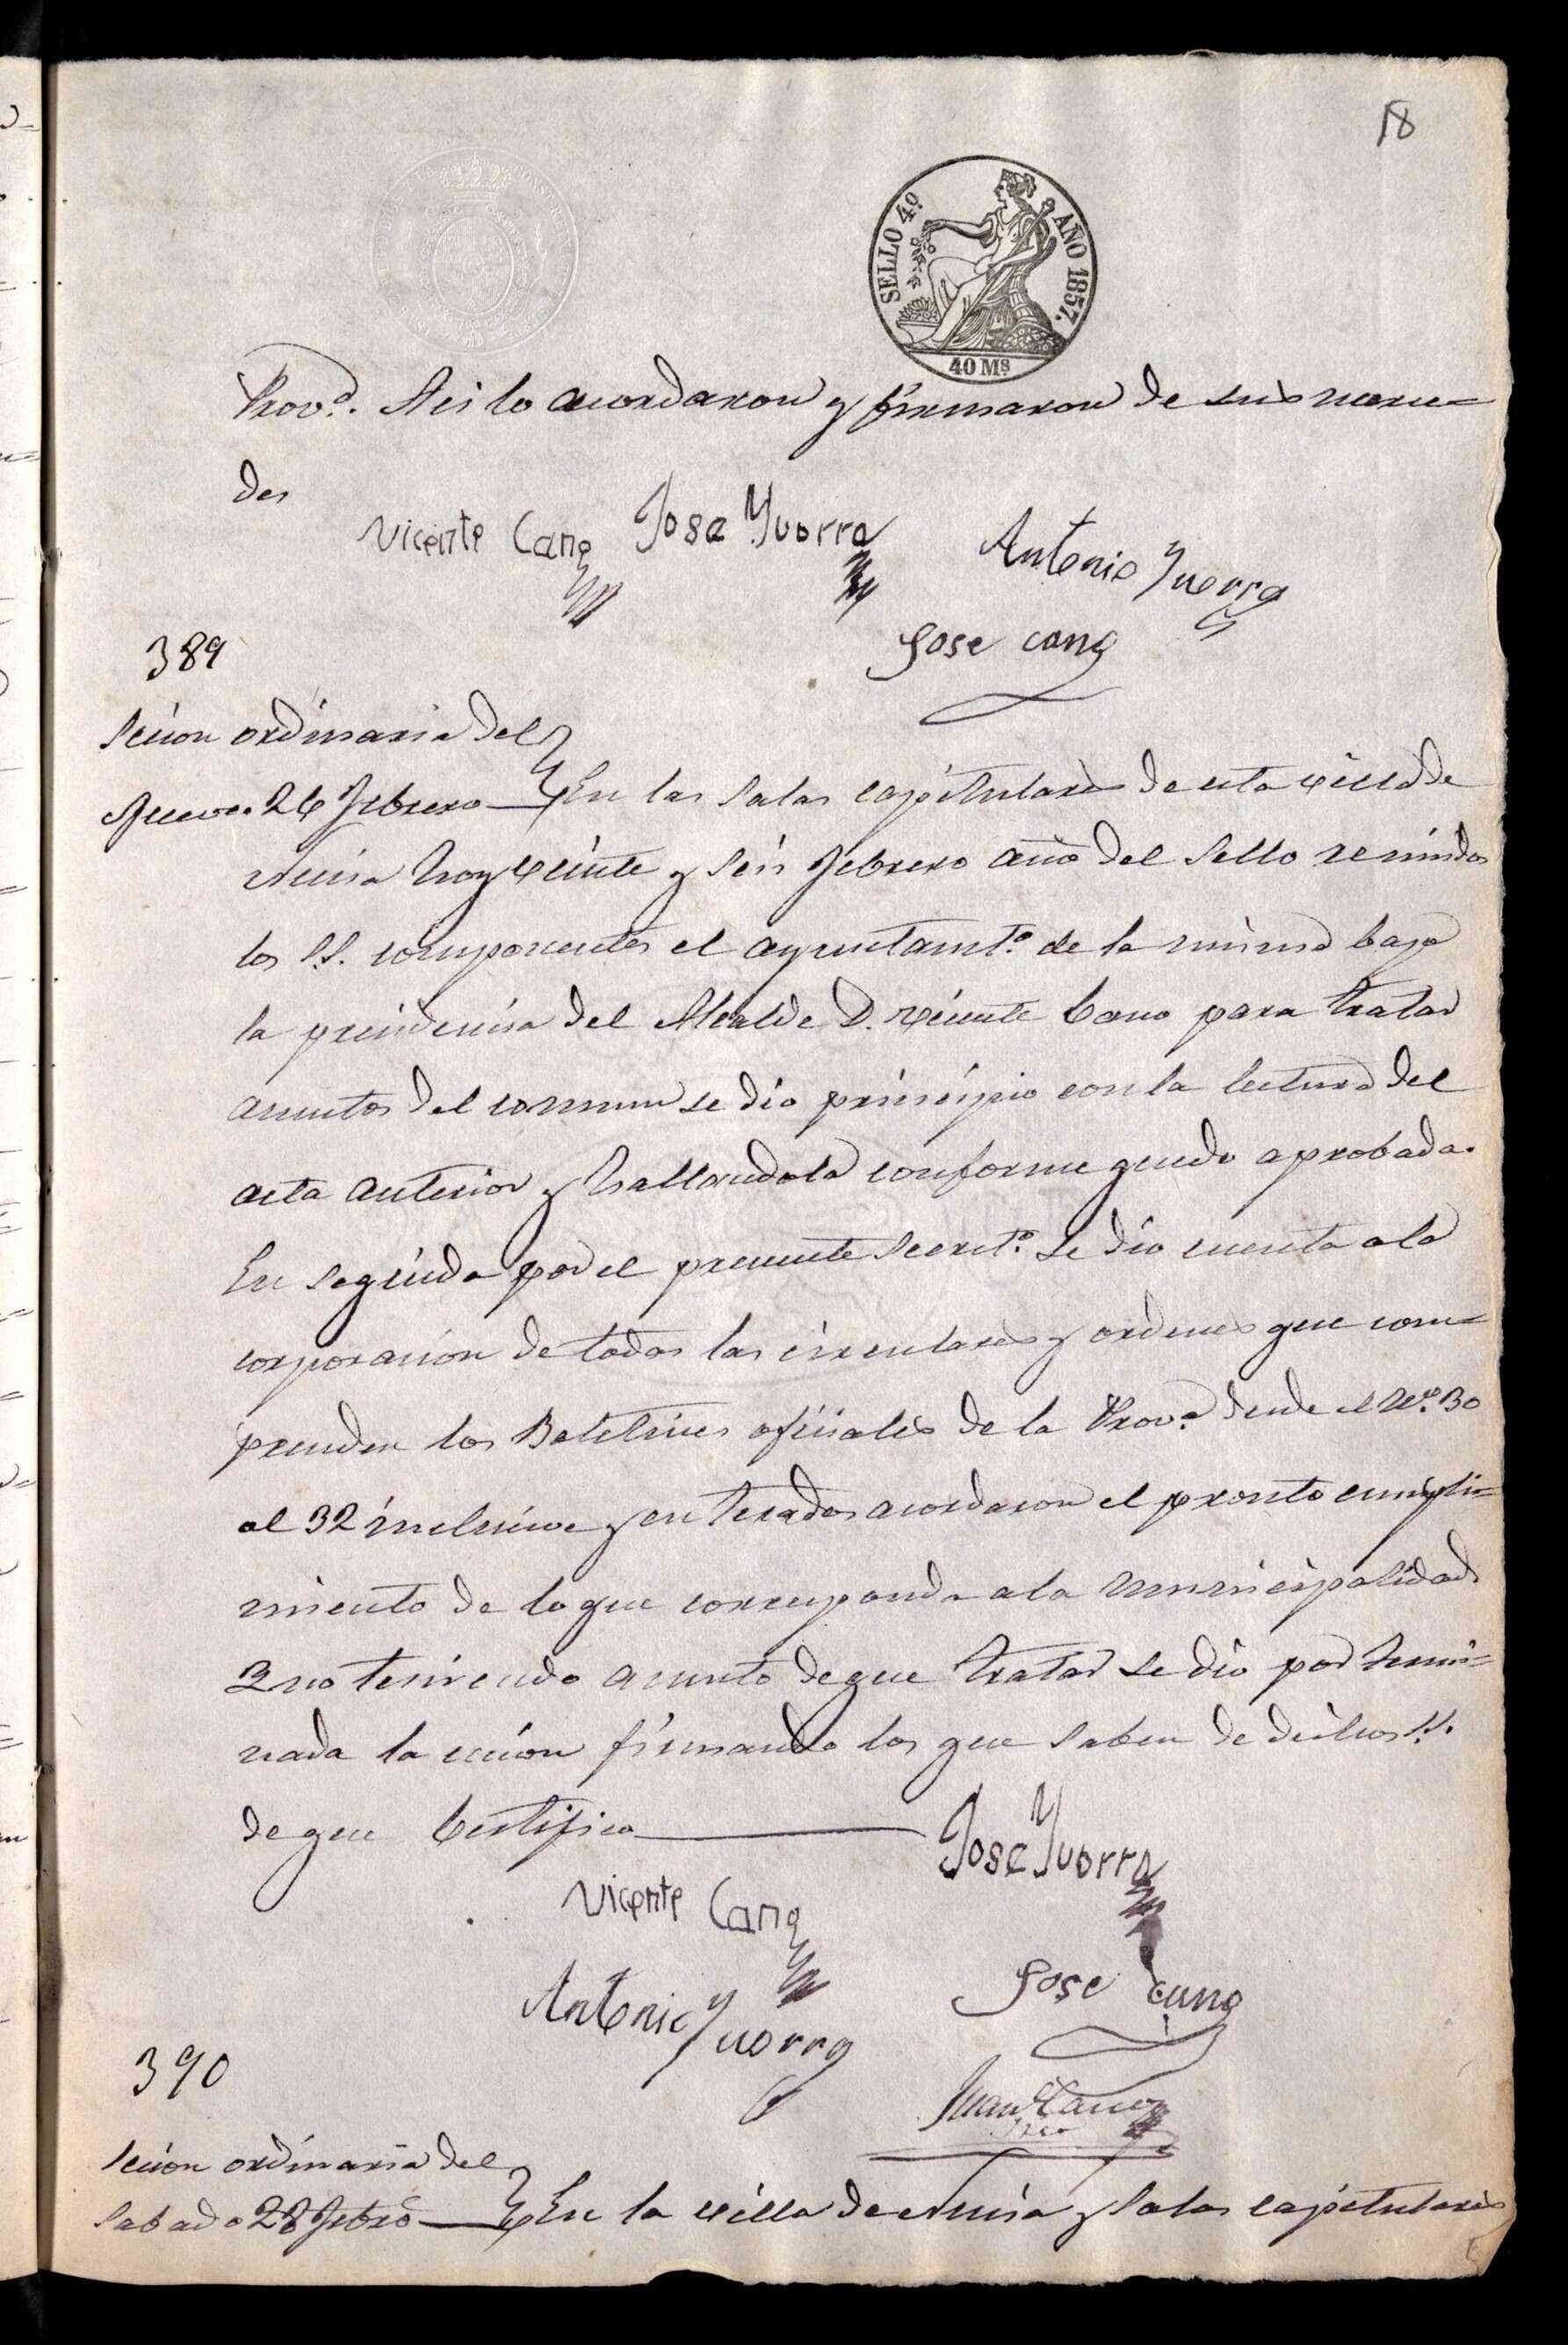 18
SELLO 4º
AÑO 1857.
40 Ms
Provª. Asi lo acordaron y firmaron de sus merce=
des
Vicente Cano Jose Yvorra Antonio Yvorra
Jose cano
389
Secion ordinaria del
Jueves 26 Febrero En las salas capitulares de esta villa de
Nucia hoy veinte y seis Febrero año del sello reunidos
los SS. componentes el ayuntamtº de la misma bajo
la presidencia del Alcalde D. Vicente Cano para tratar
asuntos del comun se dio principio con la lectura del
acta anterior y hallandola conforme quedo aprobada.
En seguida por el presente Secretº se dio cuenta a la
corporacion de todas las circulares y ordenes que com=
prenden los Boletines oficiales de la Provª desde el Nº 30
al 32 inclusive y enterados acordaron el pronto cumpli=
miento de lo que corresponda a la Municipalidad
Y no teniendo asunto de que tratar se dio por termi=
nada la secion firmando los que saben de dichos SS.
de que Certifico
Jose Yvorra
Vicente Cano
Antonio Yvorra
Jose cano
Juan Cano
Srio
390
Secion ordinaria del
Sabado 28 Febrº En la villa de Nucia y Salas capitulares